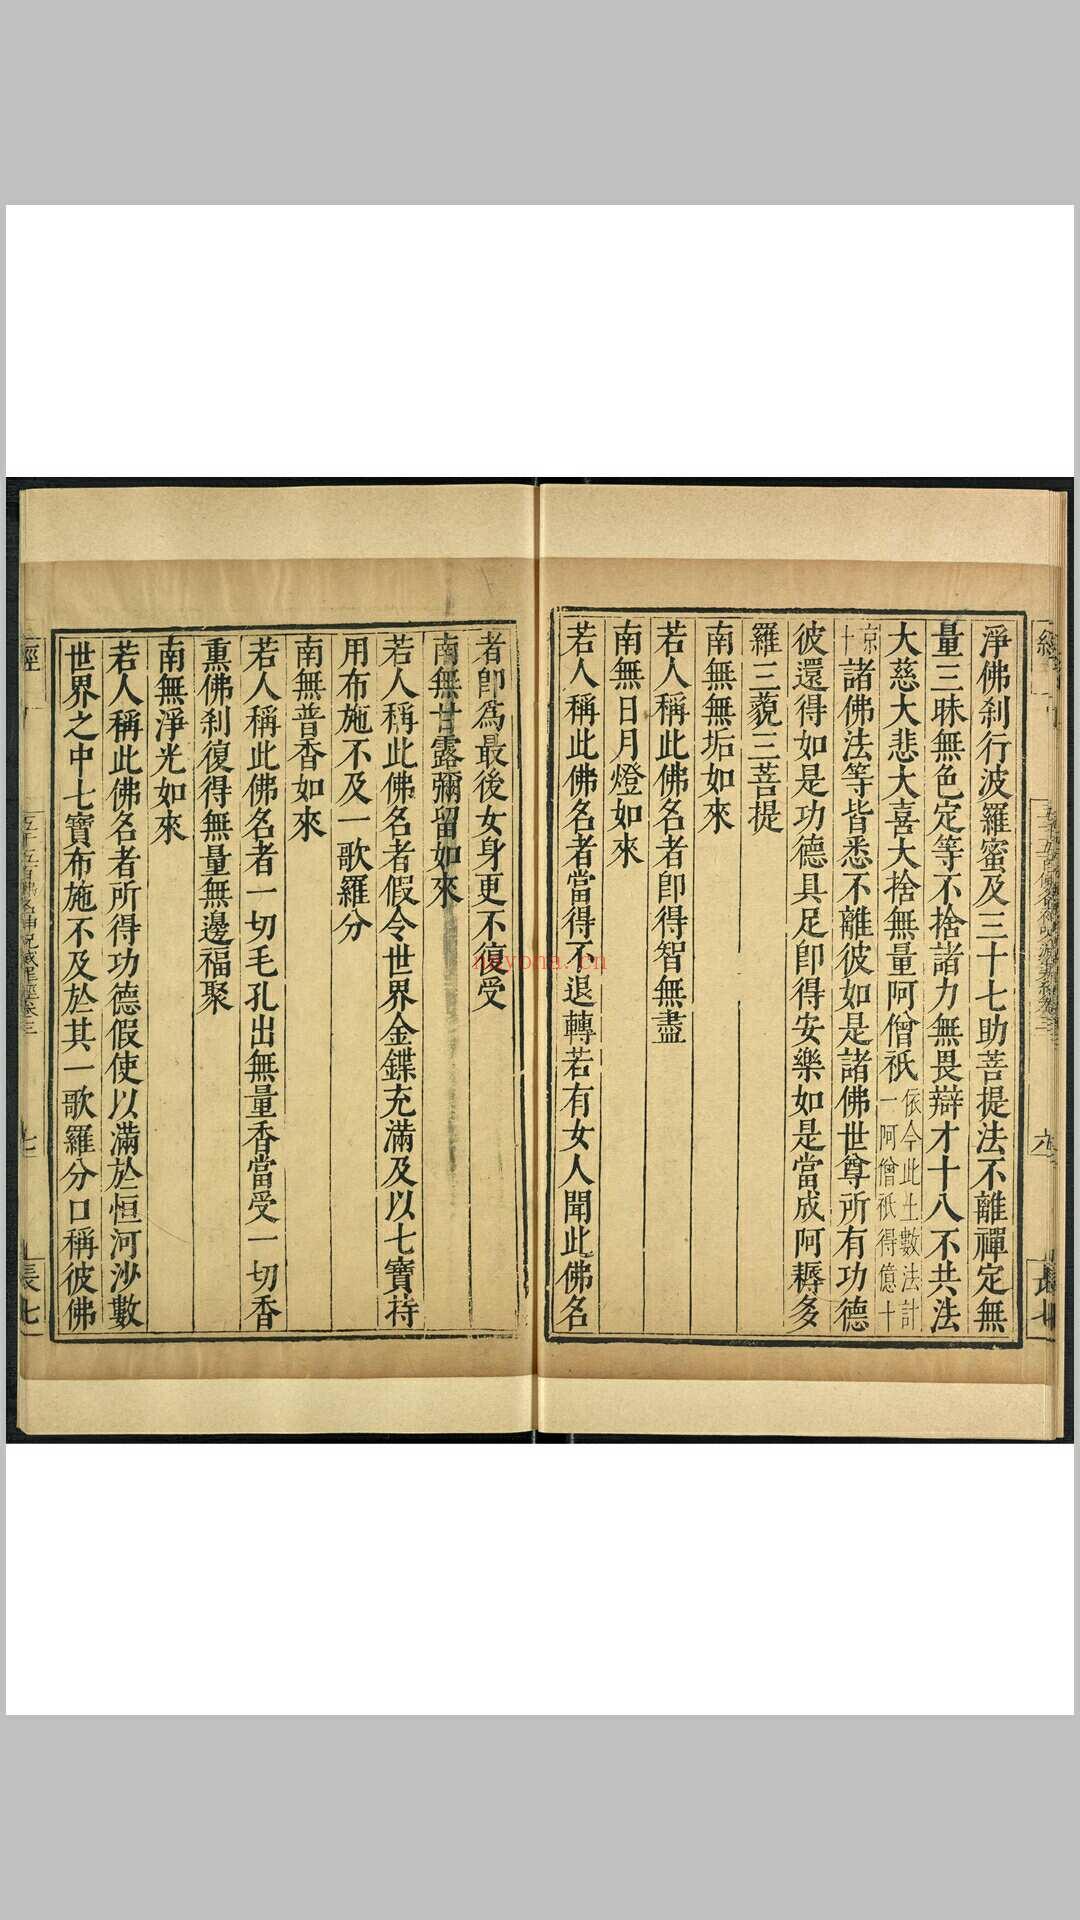 淨佛刹行波羅蜜及三十七助菩提法不離禪定無
量三昧無色定等不捨諸力無畏辯才十八不共法
大慈大悲大喜大捨無量阿僧祇依今此土數法計一阿僧祇得億十
京十諸佛法等皆悉不離彼如是諸佛世尊所有功德
彼還得如是功德具足卽得安樂如是當成阿耨多
羅三藐三菩提
南無無垢如來
若人稱此佛名者卽得智無盡
南無日月燈如來
若人稱此佛名者當得不退轉若有女人聞此佛名
者卽爲最後女身更不復受
南無甘露彌留如來
若人稱此佛名者假令世界金鍱充滿及以七寶持
用布施不及一歌羅分
南無普香如來
若人稱此佛名者一切毛孔出無量香當受一切香
熏佛刹復得無量無邊福聚
南無淨光如來
若人稱此佛名者所得功德假使以滿於恒河沙數
世界之中七寶布施不及於其一歌羅分口稱彼佛
經
五千五百佛名神呪滅罪經卷三
七
長七
nayona.cn